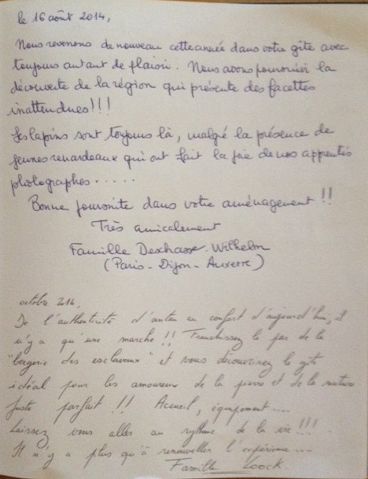 le 16 août 2014,
Nous revenons de nouveau cette année dans votre gîte avec
toujours autant de plaisir. Nous avons poursuivi la
découverte de la région qui présente des facettes
inattendues!!!
Les lapins sont toujours là, malgré la présence de
jeunes renardeaux qui ont fait la joie de nos apprentis
photographes.....
Bonne poursuite dans votre aménagement!!
Très amicalement
Famille Wilhelm
(Paris - Dijon - Auxerre)
octobre 214,
De l'authenticité d'antan au confort d'aujourd'hui, il
n'y a qu'une marche!! Franchissez le pas de la
"bergerie des esclavaux" et vous découvrirez le gîte
idéal pour les amoureux de la pierre et de la nature
Juste parfait!! Accueil, équipement....
Laissez vous aller au rythme de la vie!!!
Il n'y a plus qu'à renouveller l'expérience....
Famille Loock